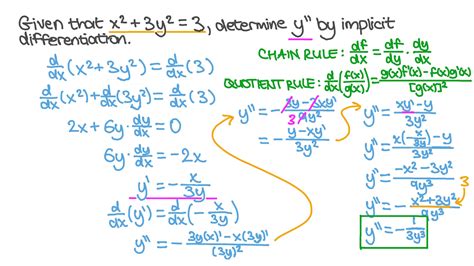 Given that x² + 3y² = 3, determine y" by implicit
differentiation.
CHAIN RULE: df/dx = df/dy · dy/dx
QUOTIENT RULE: d/dx (f(x)/g(x)) = (g(x)f'(x) - f(x)g'(x))/[g(x)]²
d/dx (x² + 3y²) = d/dx (3)
d/dx (x²) + d/dx (3y²) = d/dx (3)
2x + 6y dy/dx = 0
6y · dy/dx = -2x
y' = - x/3y
d/dx (y') = d/dx (- x/3y)
y" = - (3y(x)' - x(3y)')/(3y)²
y" = - (3y - 3xy')/9y²
3
= - (y - xy')/3y²
y" = (xy' - y)/3y²
y" = (x(- x/3y) - y)/3y²
y" = (-x² - 3y²)/9y³
y" = - (x² + 3y²)/9y³
3
y" = - 1/3y³